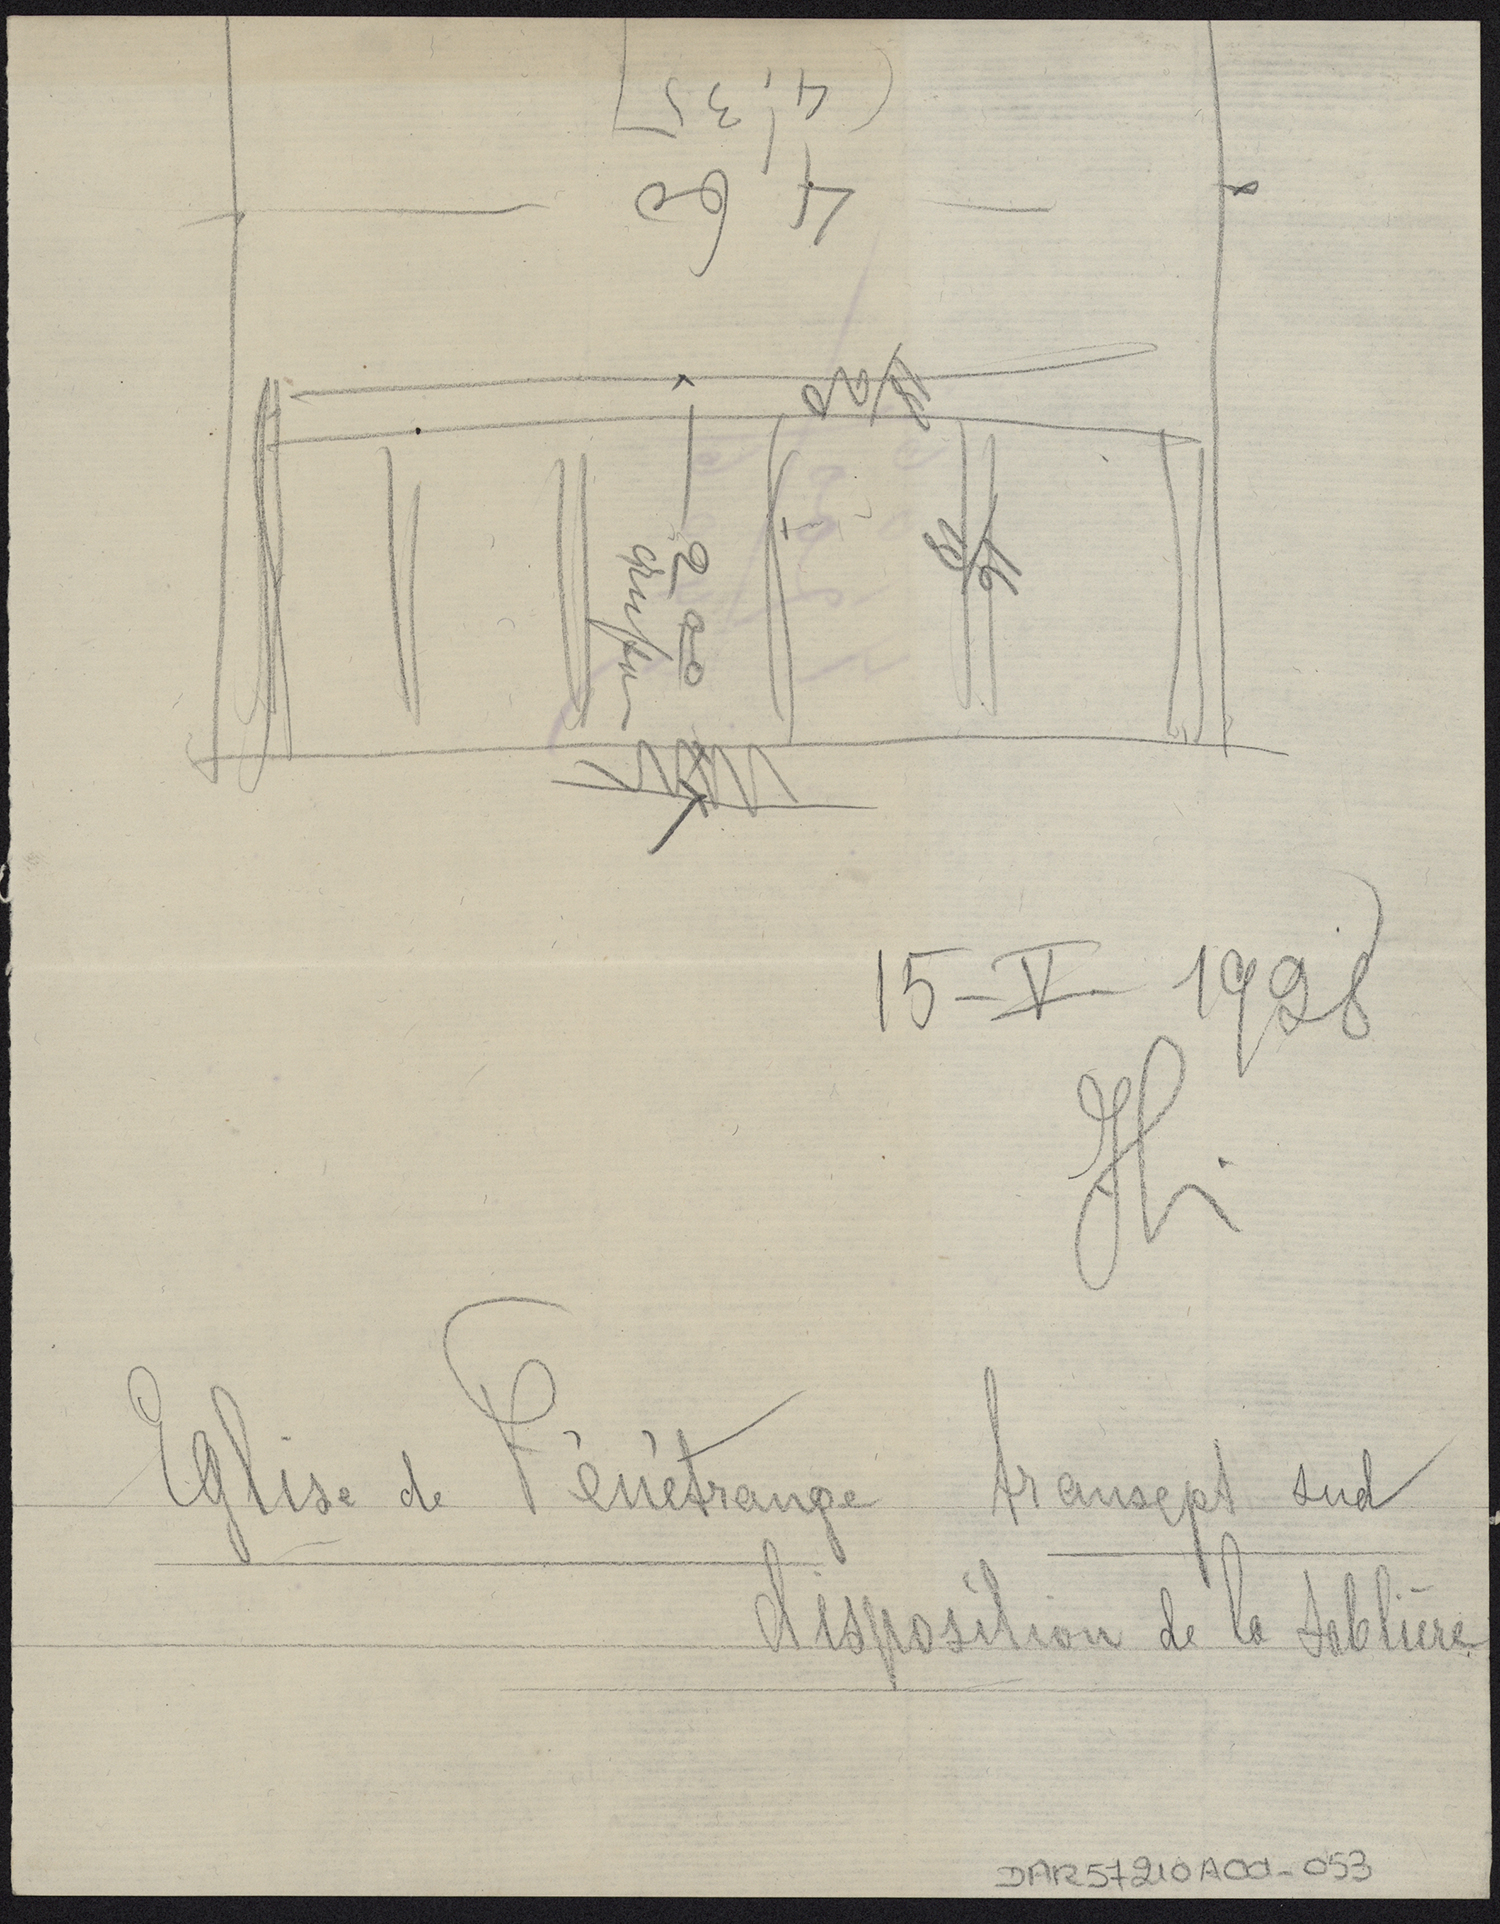 (4,35)
4,60
18/20
16/18
2,00
15-V-1928
Hi
Eglise de Fénétrange transept sud
disposition de la sablière
DAR57210A001-053